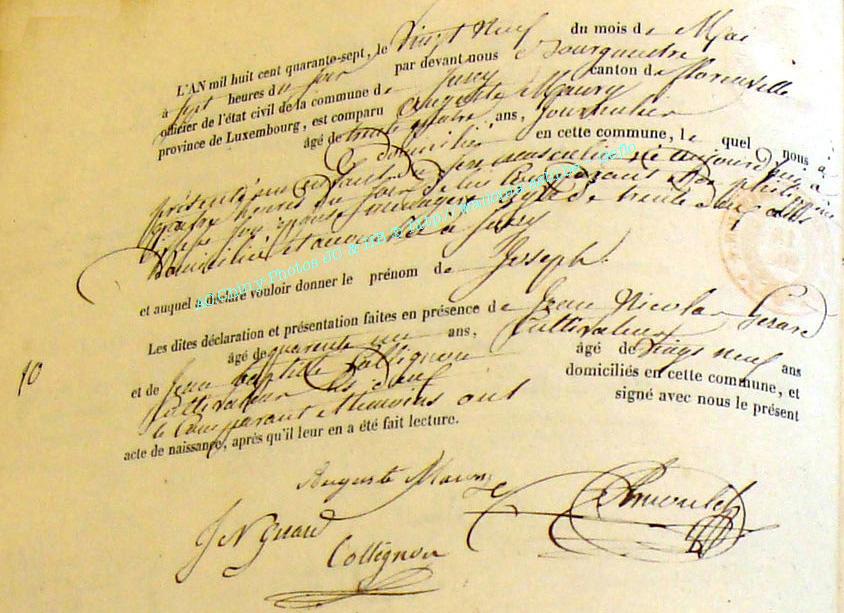 L'AN mil huit cent quarante-sept, le Vingt neuf du mois de Mai
à sept heures du soir par devant nous bourguemestre
officier de l'état civil de la commune de Suxy canton de florenville
province de Luxembourg, est comparu Auguste Maury
âgé de trente quatre ans, journalier
domicilié en cette commune, le quel nous a
présenté un enfant du sexe masculin né aujourd'hui à
quatre heures du soir de lui déclarant et de
son épouse ménagère âgée de trente deux ans
domiciliée et à Suxy
et auquel a déclaré vouloir donner le prénom de Joseph.
Les dites déclaration et présentation faites en présence de Jean Nicolas Gerard
âgé de quarante un ans, Cultivateur
et de Jean Baptiste Collignon âgé de vingt neuf ans
Cultivateur domiciliés en cette commune, et
le Comparant et témoins ont signé avec nous le présent
acte de naissance, après qu'il leur en a été fait lecture.
10
Auguste Maury
J N Gerard
Collignon